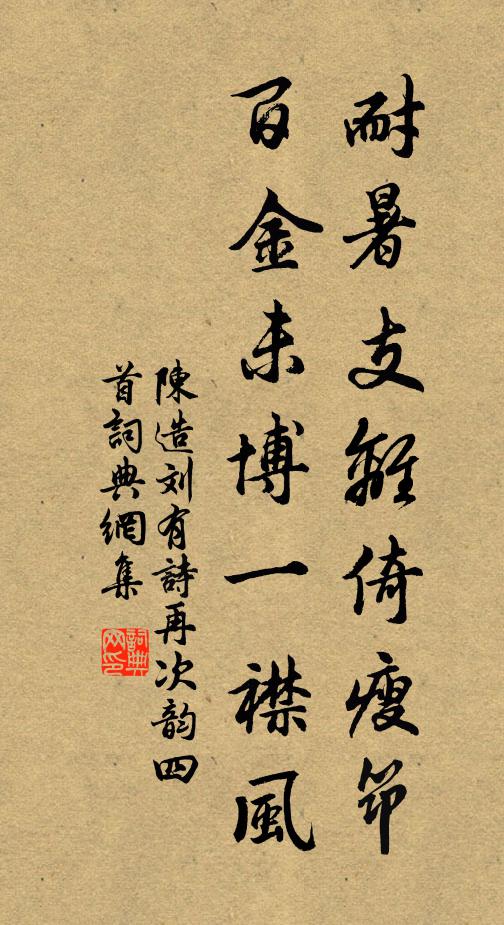 耐暑支離倚瘦筇
百金未博一襟風
陳造刘有詩再次韵四
首詞典網集
詞典网印